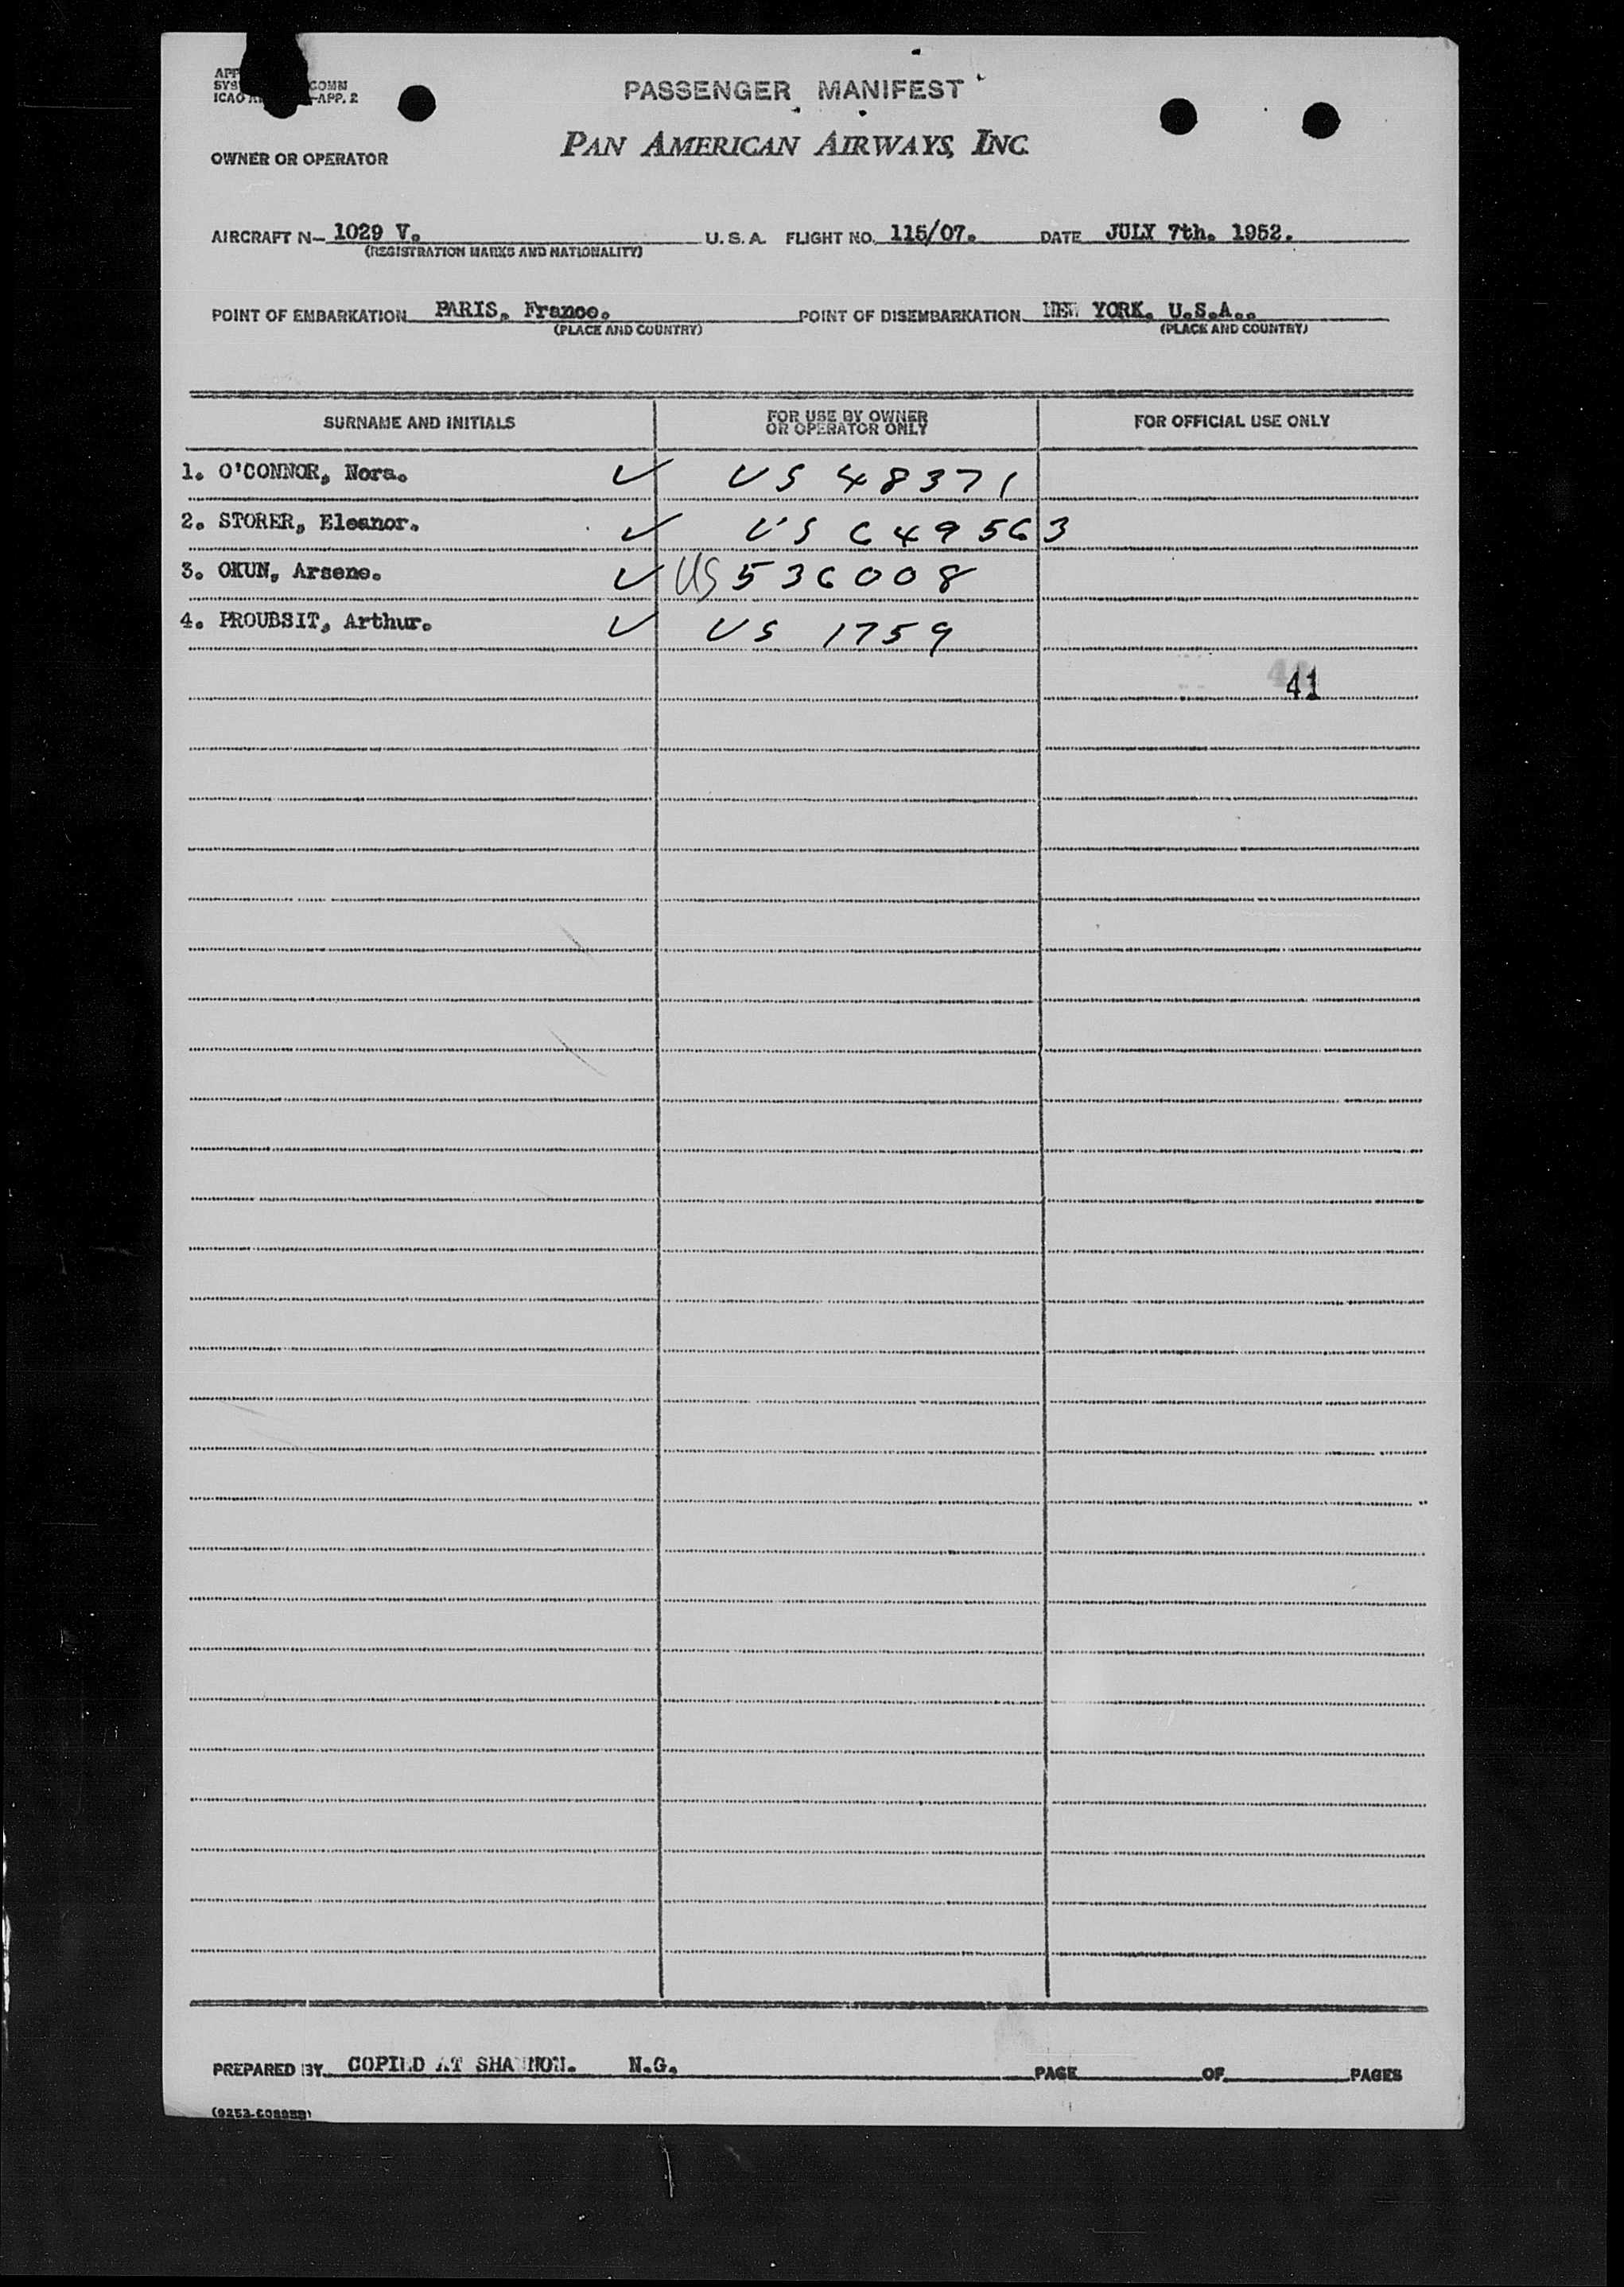 PASSENGER MANIFEST
COMM
ICAO -APP. 2
PAN AMERICAN AIRWAYS, INC.
OWNER OR OPERATOR
AIRCRAFT N- 1029 V. U.S.A. FLIGHT NO. 115/07. DATE JULY 7th. 1952.
(REGISTRATION MARKS AND NATIONALITY)
POINT OF EMBARKATION PARIS, France. POINT OF DISEMBARKATION NEW YORK. U.S.A..
(PLACE AND COUNTRY) (PLACE AND COUNTRY)
SURNAME AND INITIALS FOR USE BY OWNER OR OPERATOR ONLY FOR OFFICIAL USE ONLY
1. O'CONNOR, Nora. ✓ US 48371
2. STORER, Eleanor. ✓ US 649563
3. OKUN, Arsene. ✓ US 536008
4. PROUBSIT, Arthur. ✓ US 1759
41
PREPARED BY COPIED AT SHANNON. N.G. PAGE OF PAGES